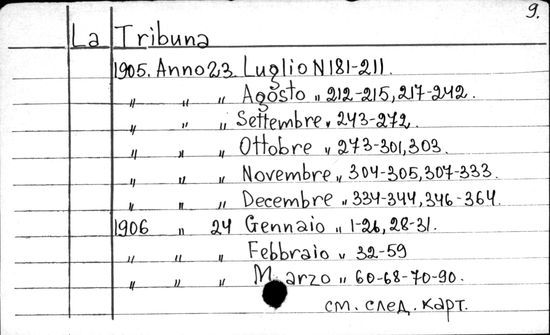 9.
La Tribuna
1905. Anno 23 Luglio N 181-211.
" " " Agosto " 212-215, 217-242.
" " " Settembre " 243-272.
" " " Ottobre " 273-301, 303.
" " " Novembre " 304-305, 307-333.
" " " Decembre " 334-344, 346-364.
1906 " 24 Gennaio " 1-26, 28-31.
" " " Febbraio " 32-59
" " " Marzo " 60-68-70-90.
см. след. карт.